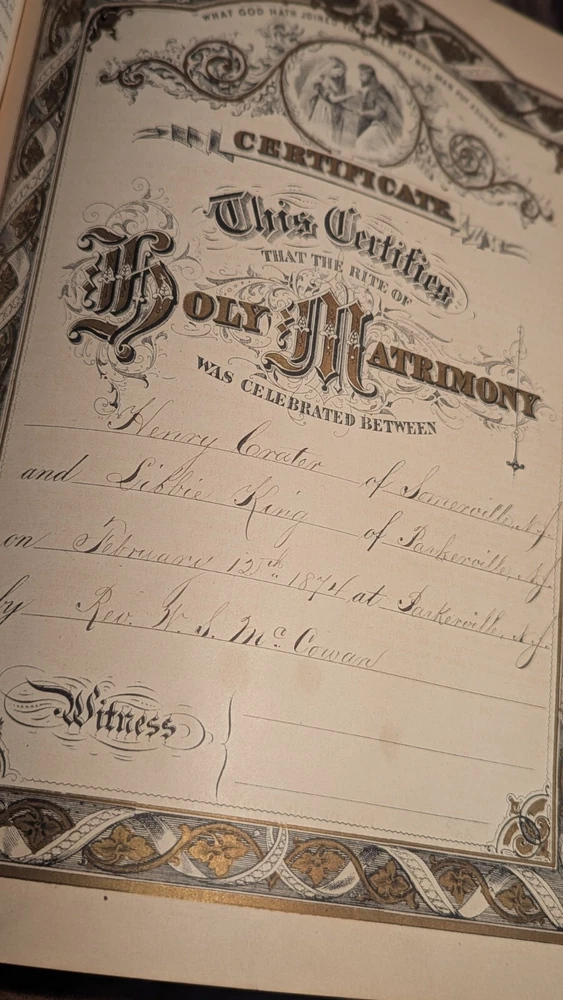 WHAT GOD HATH JOINED TOGETHER LET NOT MAN PUT ASUNDER
CERTIFICATE
This Certifies
THAT THE RITE OF
HOLY MATRIMONY
WAS CELEBRATED BETWEEN
Henry Crater of Somerville, N.J.
and Libbie King of Parkerville, N.J.
on February 12th 1874 at Parkerville, N.J.
by Rev. W. S. Mc Cowan
Witness